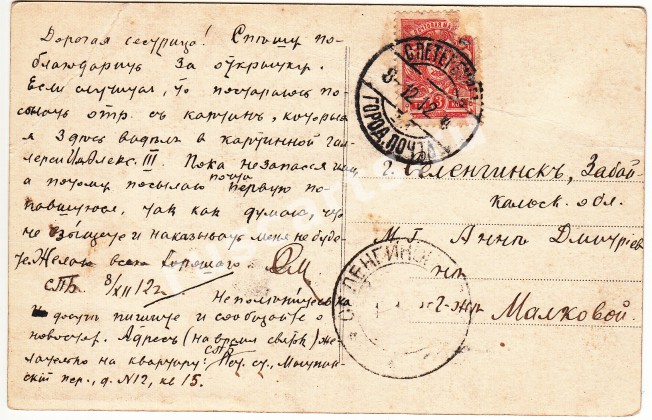 Дорогая сестрица! Спѣшу по-
благодарить за открытку.
Если случится, то постараюсь по-
слать отр. съ картинъ, которыя
я здѣсь видѣлъ в картинной гал-
лереи Алекс. III. Пока не запасся ими
а потому посылаю почти первую по-
павшуюся, такъ какъ думаю, что
не взыщете и наказывать меня не буде-
те. Желаю всего хорошаго.
СПБ. 8/XII 12 г.
и
пишите и сообщайте о
новостяхъ. Адресъ (на время святокъ) же-
лательно на квартиру: СПБ
пер., д. N12, кв 15.
С.ПЕТЕРБУРГ
8-12.12
ГОРОД. ПОЧТА
3
г. Селенгинскъ, Забай-
кальск. обл.
М. Г. Аннѣ Дмитріев-
нѣ
г-жѣ Малковой.
СЕЛЕНГИНСК